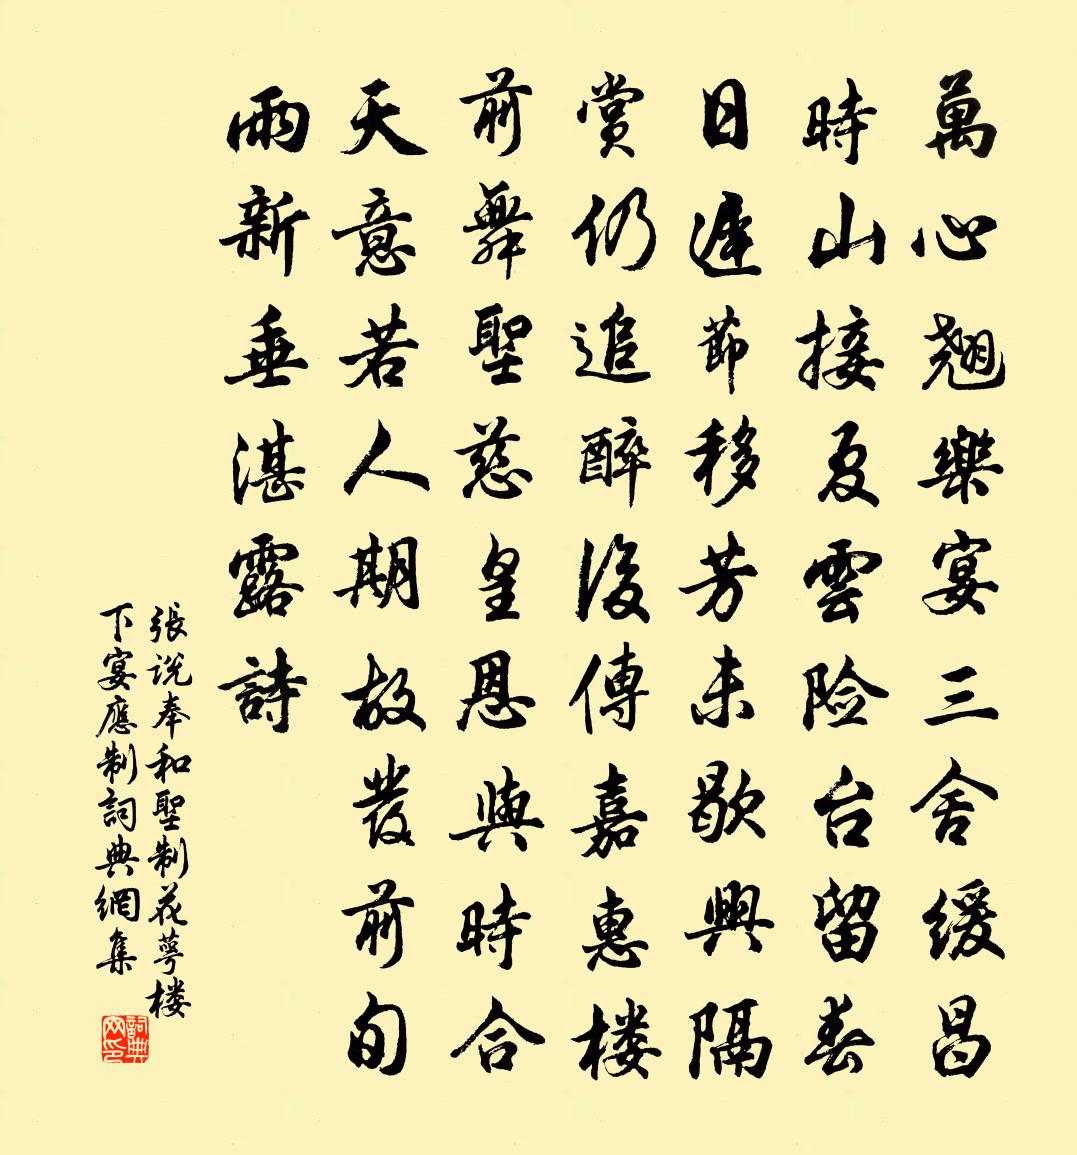 萬心翹樂宴三舍緩昌
時山接夏雲险台留春
日遲節移芳未歇興隔
賞仍追醉後傳嘉惠楼
前舞聖慈皇恩與時合
天意若人期故發前旬
雨新垂湛露詩
張说奉和聖制花萼楼
下宴應制詞典網集
詞典網印